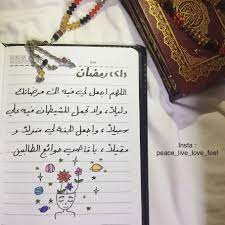 رمضان
اللهم اجعل لي فيه الى مرضاتك
دليلاً، ولا تجعل للشيطان فيه علي
سبيلاً، واجعل الجنة لي منزلاً و
مقيلاً، يا قاضي حوائج الطالبين.
Insta :
peace_live_love_feel